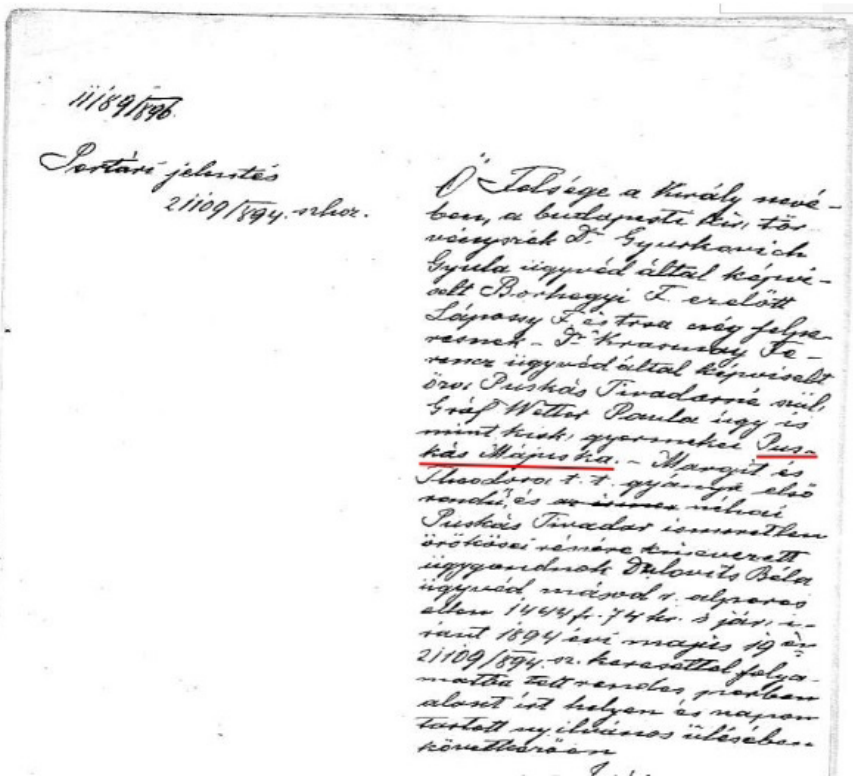 11189/896.
Pertári jelentés
21109/894. szhoz.
Ő Felsége a Király nevé-
ben, a budapesti kir. tör-
vényszék Dr. Gyurkovich
Gyula ügyvéd által képvi-
selt Borhegyi F. ezelőtt
Lápossy F. és trsa cég felpe-
resnek – Dr. Krasznay Fe-
rencz ügyvéd által képviselt
özv. Puskás Tivadarné szül.
Gróf Wetter Paula úgy is
mint kisk. gyermekei Pus-
kás Májuska. – Margit és
Theodora t. t. gyámja első
rendű, és néhai
Puskás Tivadar ismeretlen
örökösei részére kinevezett
ügygondnok Dulovits Béla
ügyvéd másod r. alperes
ellen 1444 fr. 74 kr. s jár. i-
ránt 1894 évi majus 19 én
21109/894. sz. keresettel folya-
matba tett rendes perben
alant irt helyen és napon
tartott nyilvános ülésében
következően